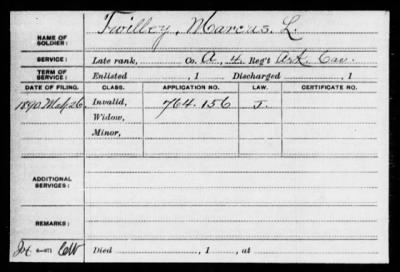 NAME OF SOLDIER: Twilley, Marcus. L.
SERVICE: Late rank, Co. A, 4 Reg't Ark. Cav.
TERM OF SERVICE: Enlisted , 1 Discharged , 1
DATE OF FILING. CLASS. APPLICATION NO. LAW. CERTIFICATE NO.
1890 May 26 Invalid, 764.156 J.
Widow,
Minor,
ADDITIONAL SERVICES:
REMARKS:
Died , 1 , at